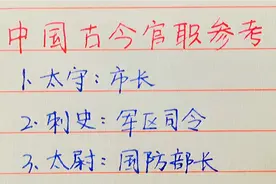 中国古今官职参考
1.太守：市长
2.刺史：军区司令
3.太尉：国防部长